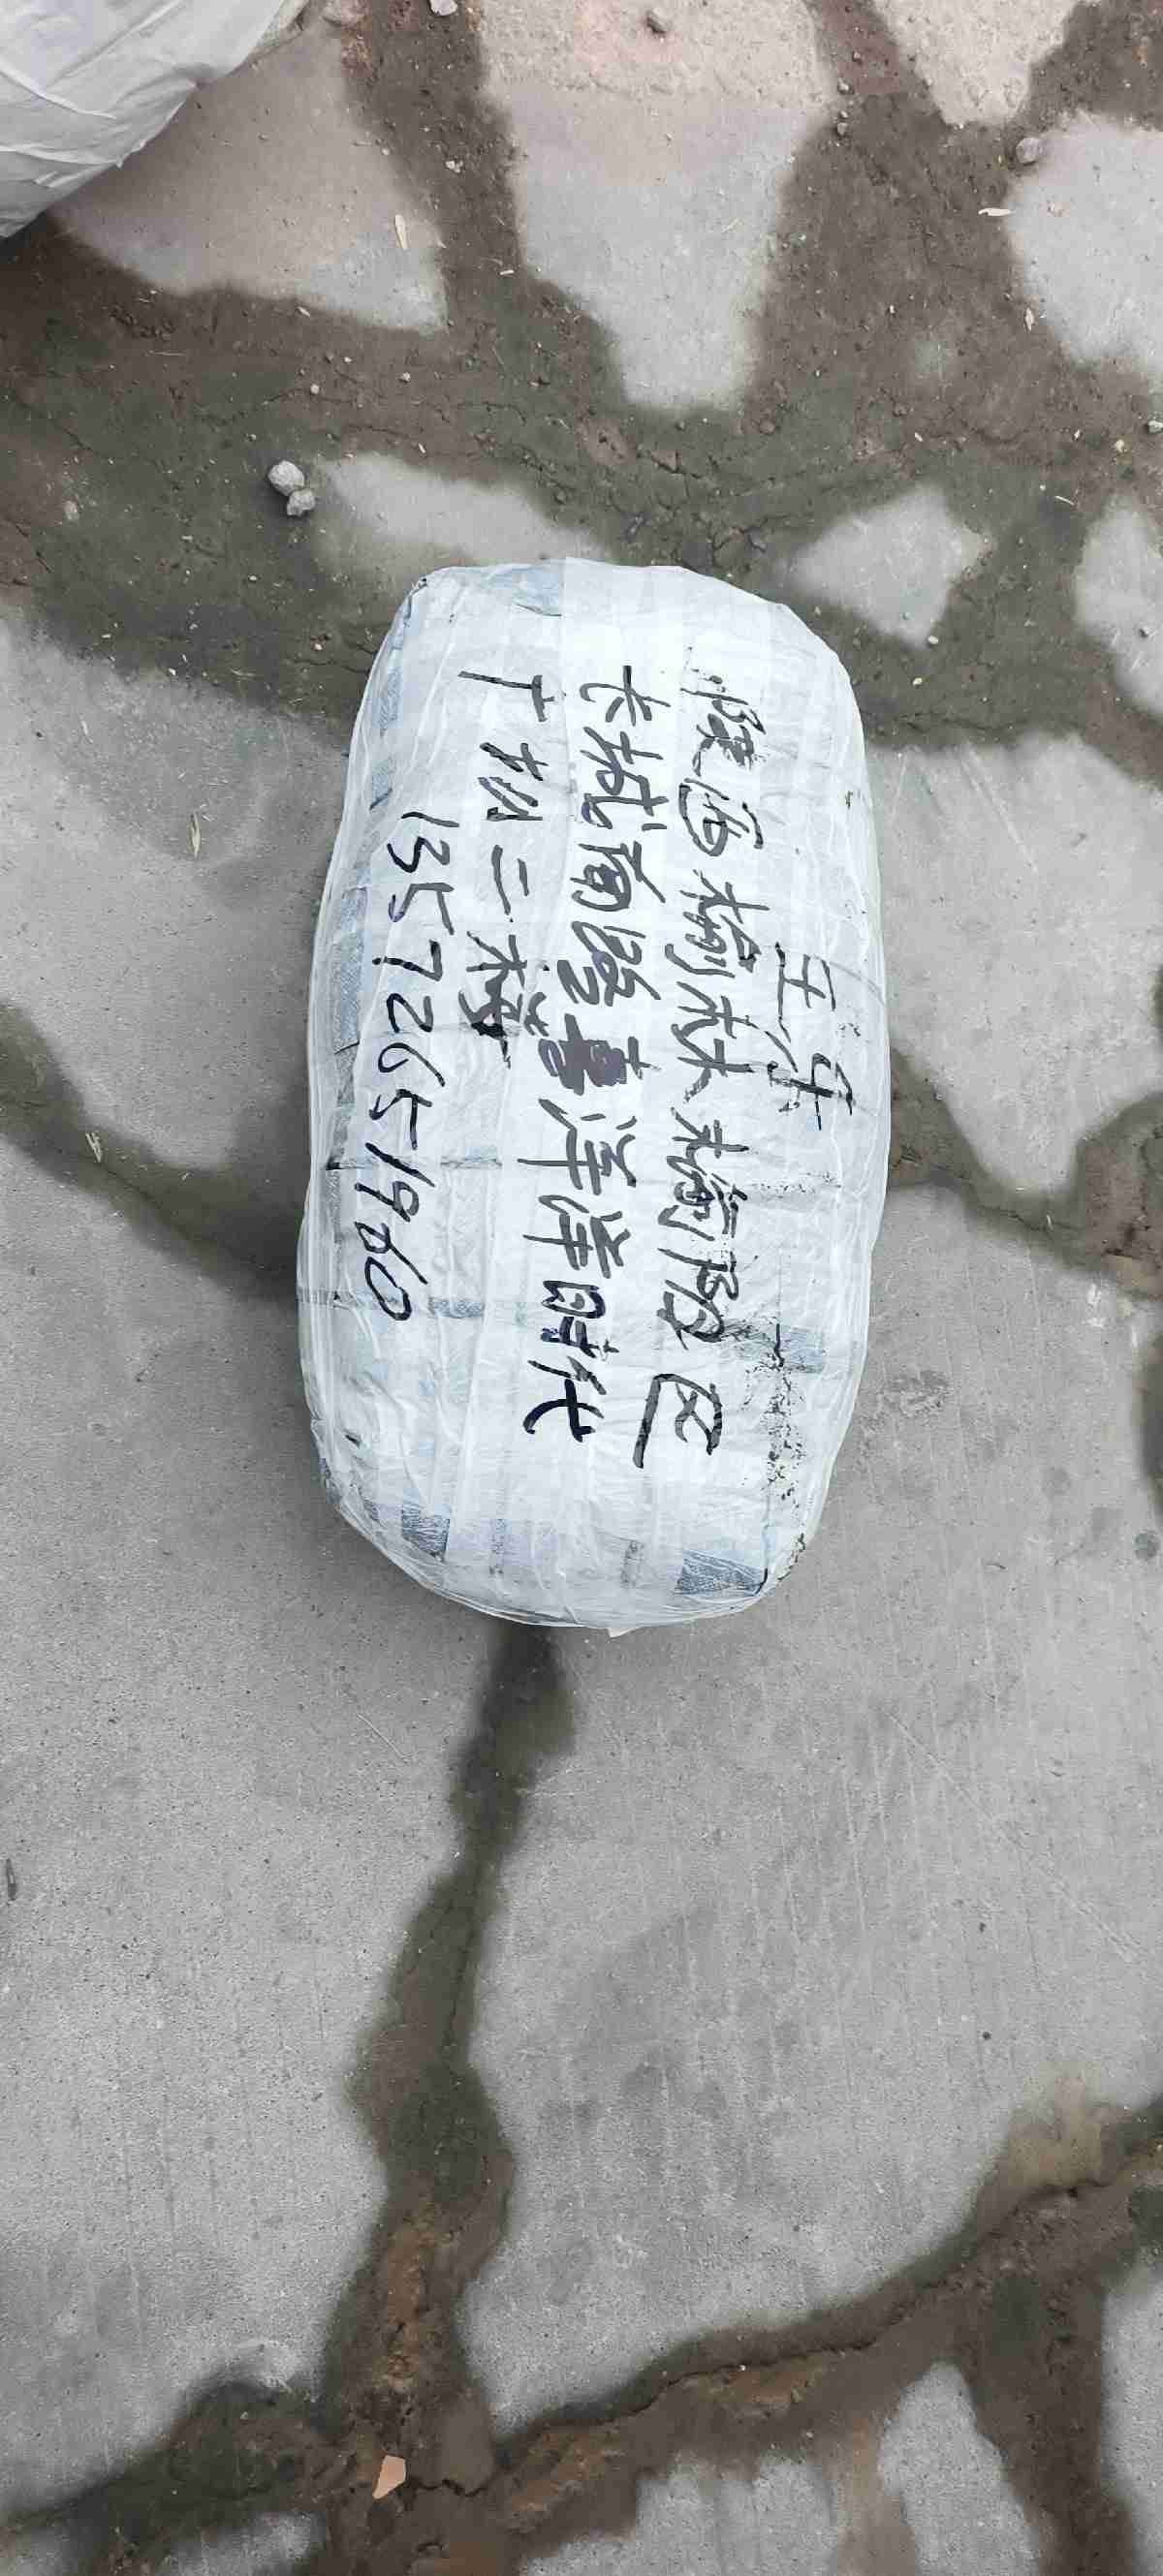 王牛
陕西榆林榆阳区
长城南路喜洋洋时代
广场二楼
13572651960